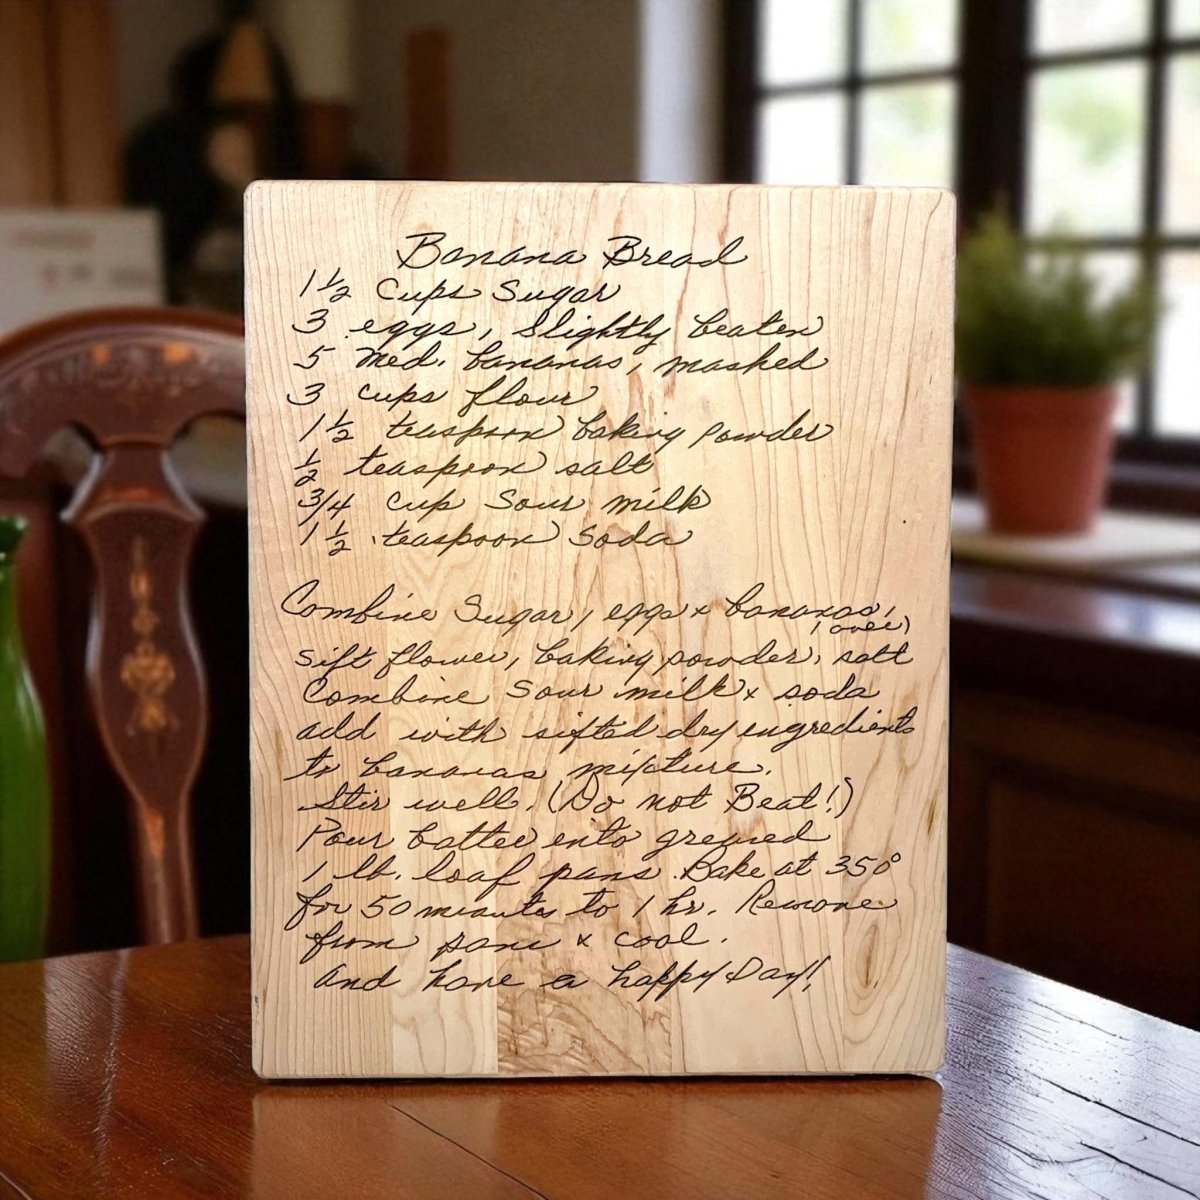 Banana Bread
1 1/2 cups Sugar
3 eggs, slightly beaten
5 med. bananas, mashed
3 cups flour
1 1/2 teaspoon baking powder
1/2 teaspoon salt
3/4 cup sour milk
1 1/2 teaspoon soda
Combine Sugar, eggs & bananas,
(over)
sift flower, baking powder, salt
Combine sour milk & soda
add with sifted dry ingredients
to bananas mixture.
Stir well. (Do not Beat!)
Pour batter into greased
1 lb. loaf pans. Bake at 350°
for 50 minutes to 1 hr. Remove
from pans & cool.
And have a happy Day!